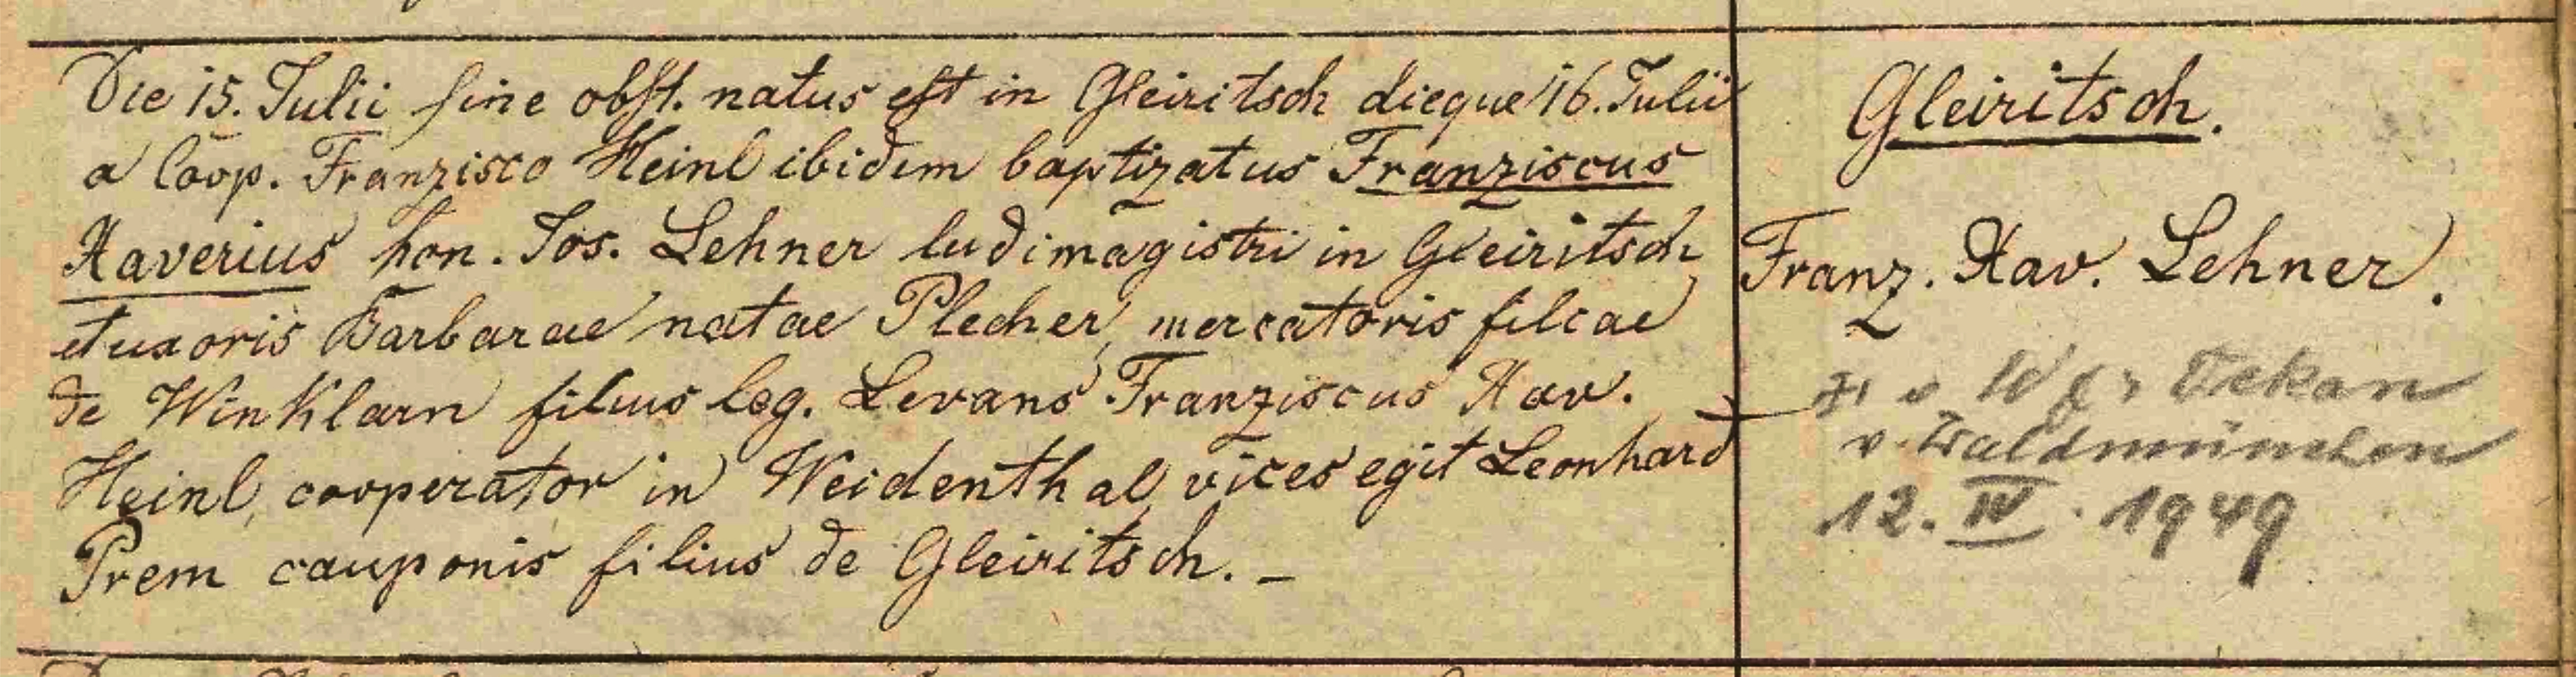 Die 15. Julii sine obst. natus est in Gleiritsch dieque 16. Julii
a Coop. Franzisco Heinl ibidem baptizatus Franziscus
Xaverius hon. Jos. Lehner ludimagistri in Gleiritsch
et uxoris Barbarae natae Plecher, mercatoris filiae
de Winklarn filius leg. Levans Franziscus Xav.
Heinl, cooperator in Weidenthal, vices egit Leonhard
Prem cauponis filius de Gleiritsch. –
Gleiritsch.
Franz. Xav. Lehner.
Dekan
v. Waldmünchen
12. IV. 1949